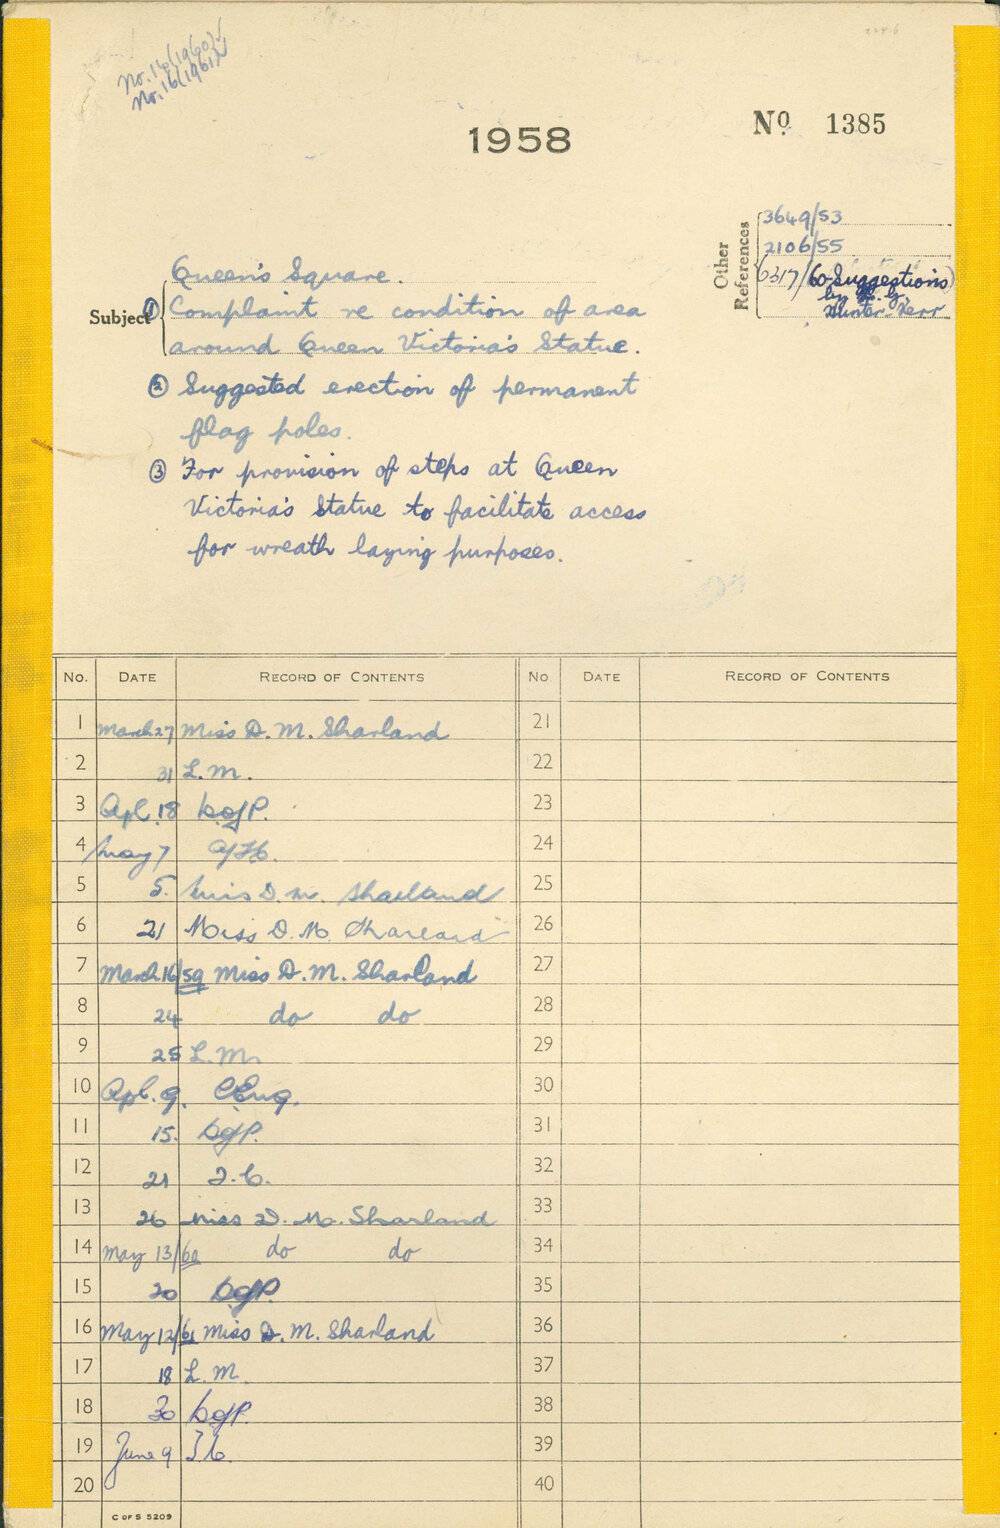 No. 14 (1960)
No. 16 (1961)
1958
No 1385
Other References
3649/53
2106/55
6317/60 - Suggestions
by
Hunter-Kerr
Subject
Queen's Square.
① Complaint re condition of area
around Queen Victoria's Statue.
② Suggested erection of permanent
flag poles.
③ For provision of steps at Queen
Victoria's Statue to facilitate access
for wreath laying purposes.
No. DATE RECORD OF CONTENTS No DATE RECORD OF CONTENTS
1 March 27 Miss D. M. Sharland 21
2 31 L.M. 22
3 Apl. 18 D of P. 23
4 May 7 24
5 5. Miss D. M. Sharland 25
6 21 Miss D. M. Sharland 26
7 March 16/59 Miss D. M. Sharland 27
8 24 do do 28
9 25 L.M. 29
10 Apl. 9. C Eng. 30
11 15. D of P. 31
12 21 T.C. 32
13 26 Miss D. M. Sharland 33
14 May 13/60 do do 34
15 20 D of P. 35
16 May 12/61 Miss D. M. Sharland 36
17 18 L.M. 37
18 30 D of P. 38
19 June 9 T.C. 39
20 40
C OF S 5209